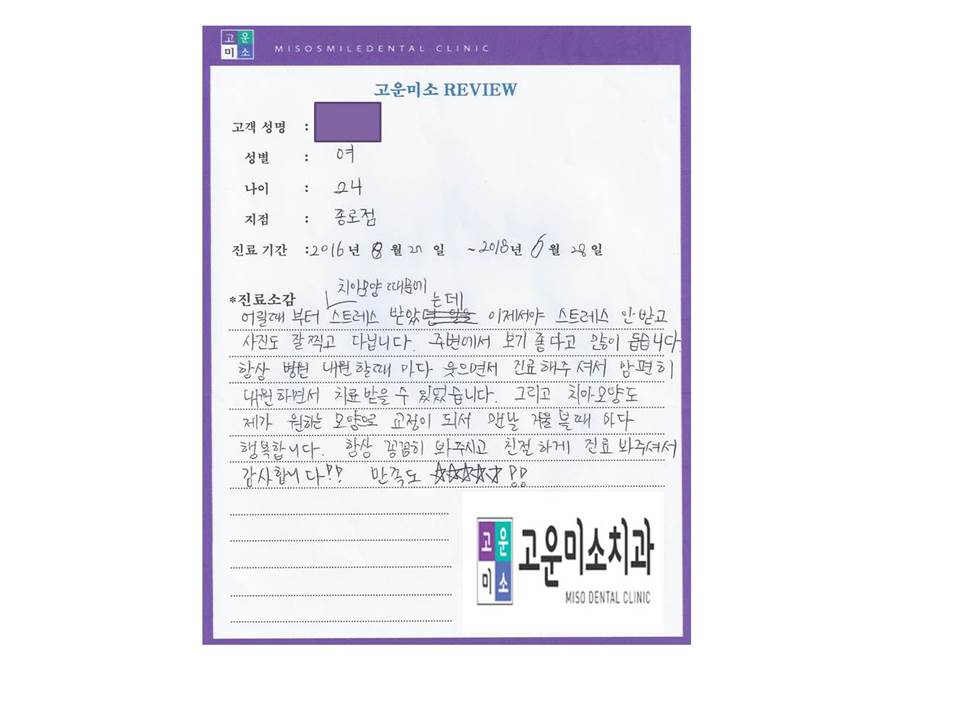 고운
미소
MISOSMILEDENTAL CLINIC
고운미소 REVIEW
고객 성명 :
성별 : 여
나이 : 24
지점 : 종로점
진료 기간 : 2016년 8월 20일 ~ 2018년 6월 28일
*진료소감
치아모양 때문에
는데
어릴때 부터 스트레스 받았 이제서야 스트레스 안받고
사진도 잘찍고 다닙니다. 주변에서 보기 좋다고 많이 듭습니다.
항상 병원 내원할때 마다 웃으면서 진료해주셔서 맘편히
내원하면서 치료받을 수 있었습니다. 그리고 치아모양도
제가 원하는 모양으로 교정이 되서 맨날 거울 볼때 마다
행복합니다. 항상 꼼꼼히 봐주시고 친절하게 진료 봐주셔서
감사합니다!! 만족도 ☆☆☆☆☆ !!
고운
미소
고운미소치과
MISO DENTAL CLINIC